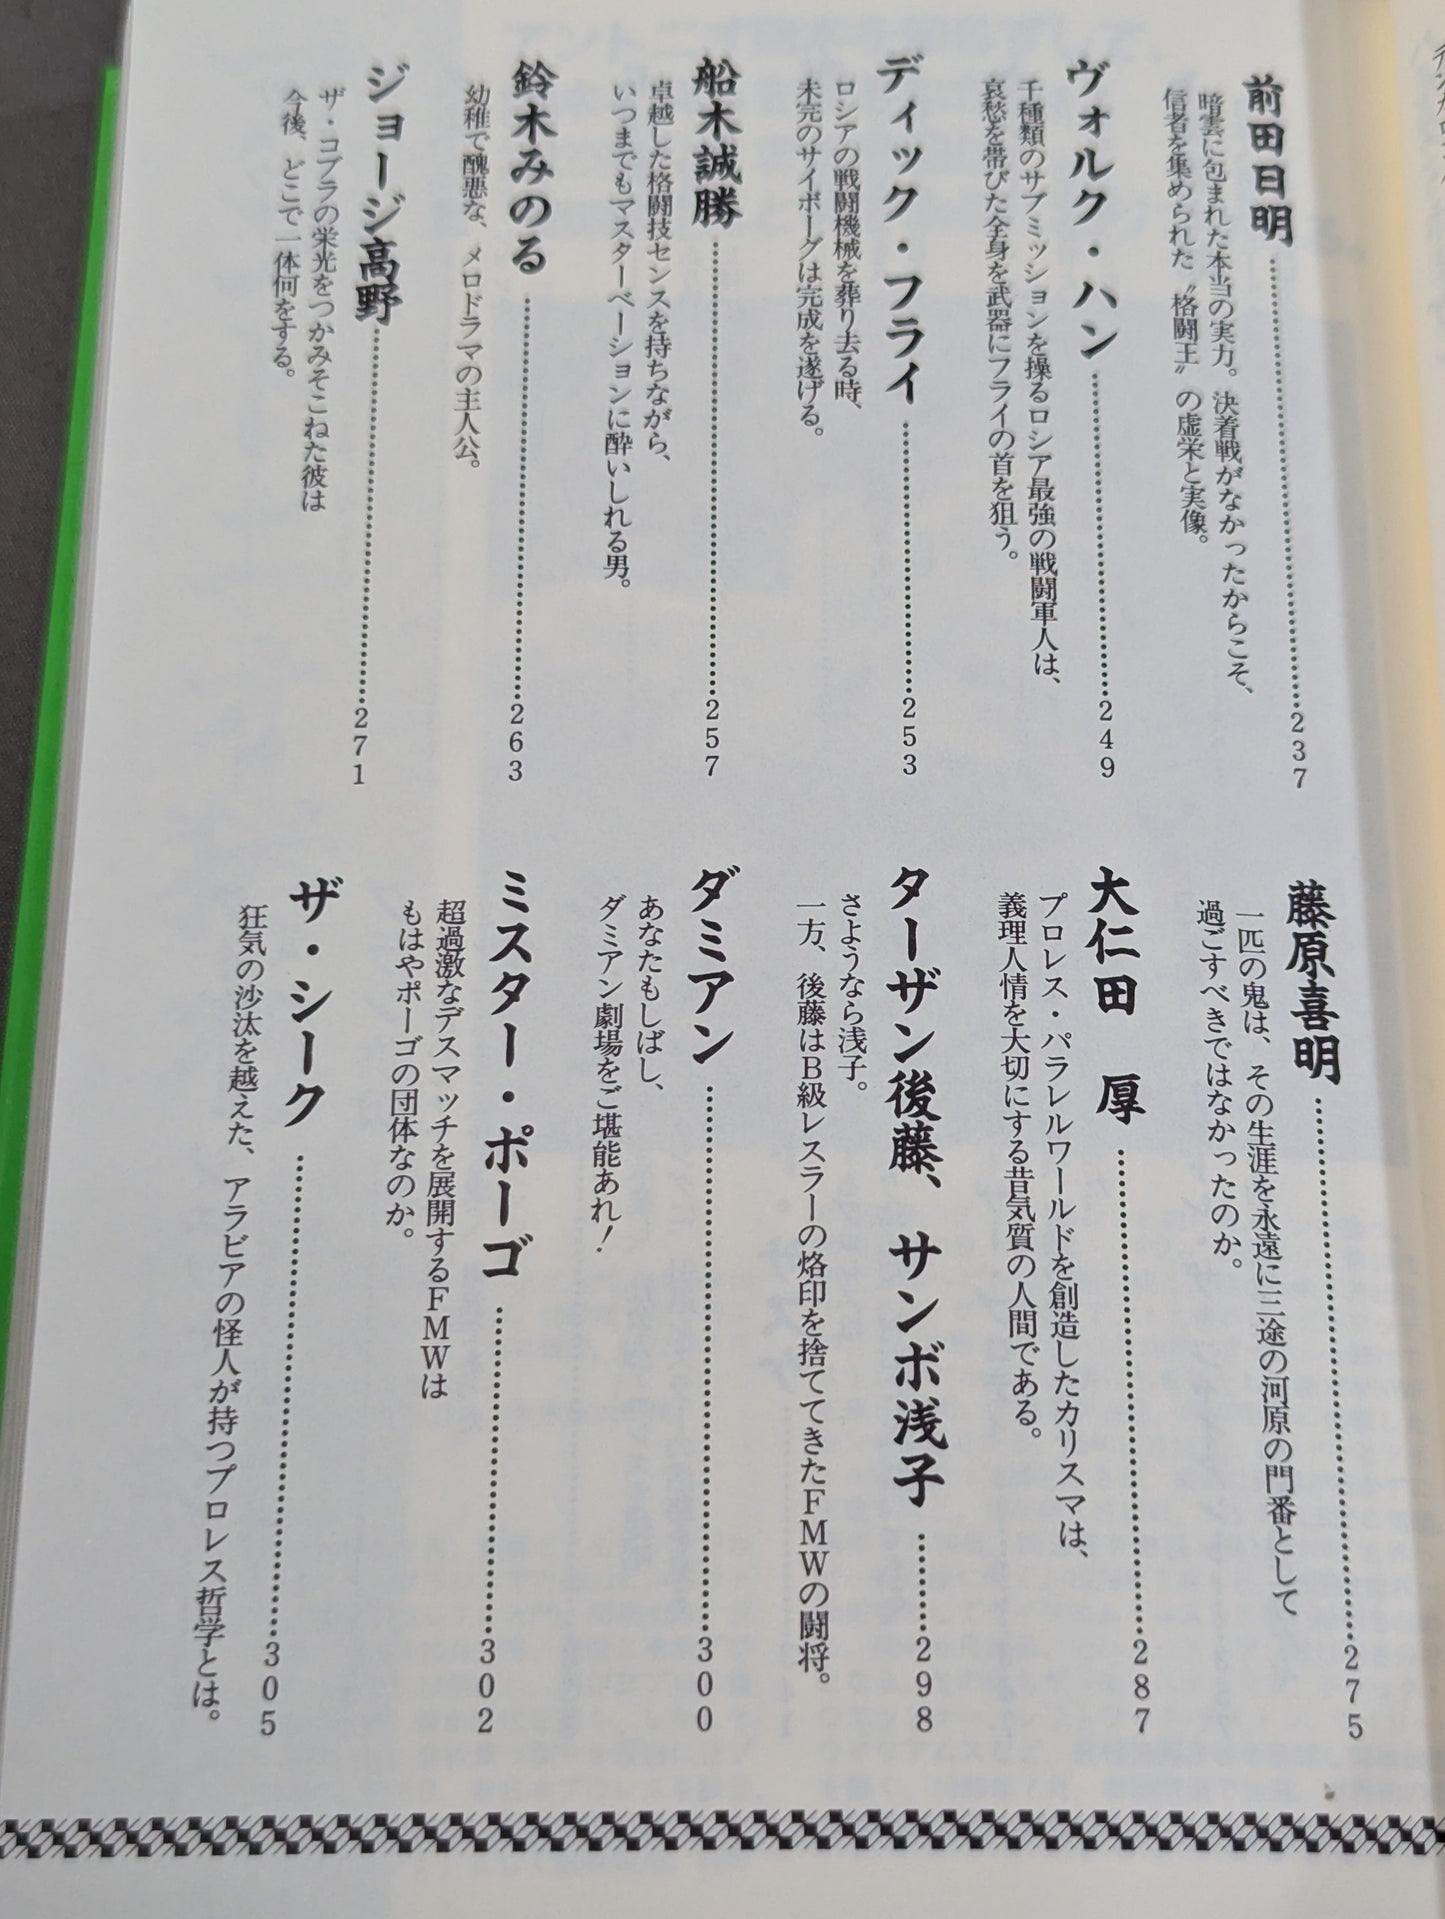 前田日明……237
暗雲に包まれた本当の実力。決着戦がなかったからこそ、
信者を集められた〝格闘王〟の虚栄と実像。
ヴォルク・ハン……249
千種類のサブミッションを操るロシア最強の戦闘軍人は、
哀愁を帯びた全身を武器にフライの首を狙う。
ディック・フライ……253
ロシアの戦闘機械を葬り去る時、
未完のサイボーグは完成を遂げる。
船木誠勝……257
卓越した格闘技センスを持ちながら、
いつまでもマスターベーションに酔いしれる男。
鈴木みのる……263
幼稚で醜悪な、メロドラマの主人公。
ジョージ高野……271
ザ・コブラの栄光をつかみそこねた彼は
今後、どこで一体何をする。
藤原喜明……275
一匹の鬼は、その生涯を永遠に三途の河原の門番として
過ごすべきではなかったのか。
大仁田 厚……287
プロレス・パラレルワールドを創造したカリスマは、
義理人情を大切にする昔気質の人間である。
ターザン後藤、サンボ浅子……298
さようなら浅子。
一方、後藤はB級レスラーの烙印を捨ててきたFMWの闘将。
ダミアン……300
あなたもしばし、
ダミアン劇場をご堪能あれ!
ミスター・ポーゴ……302
超過激なデスマッチを展開するFMWは
もはやポーゴの団体なのか。
ザ・シーク……305
狂気の沙汰を越えた、アラビアの怪人が持つプロレス哲学とは。